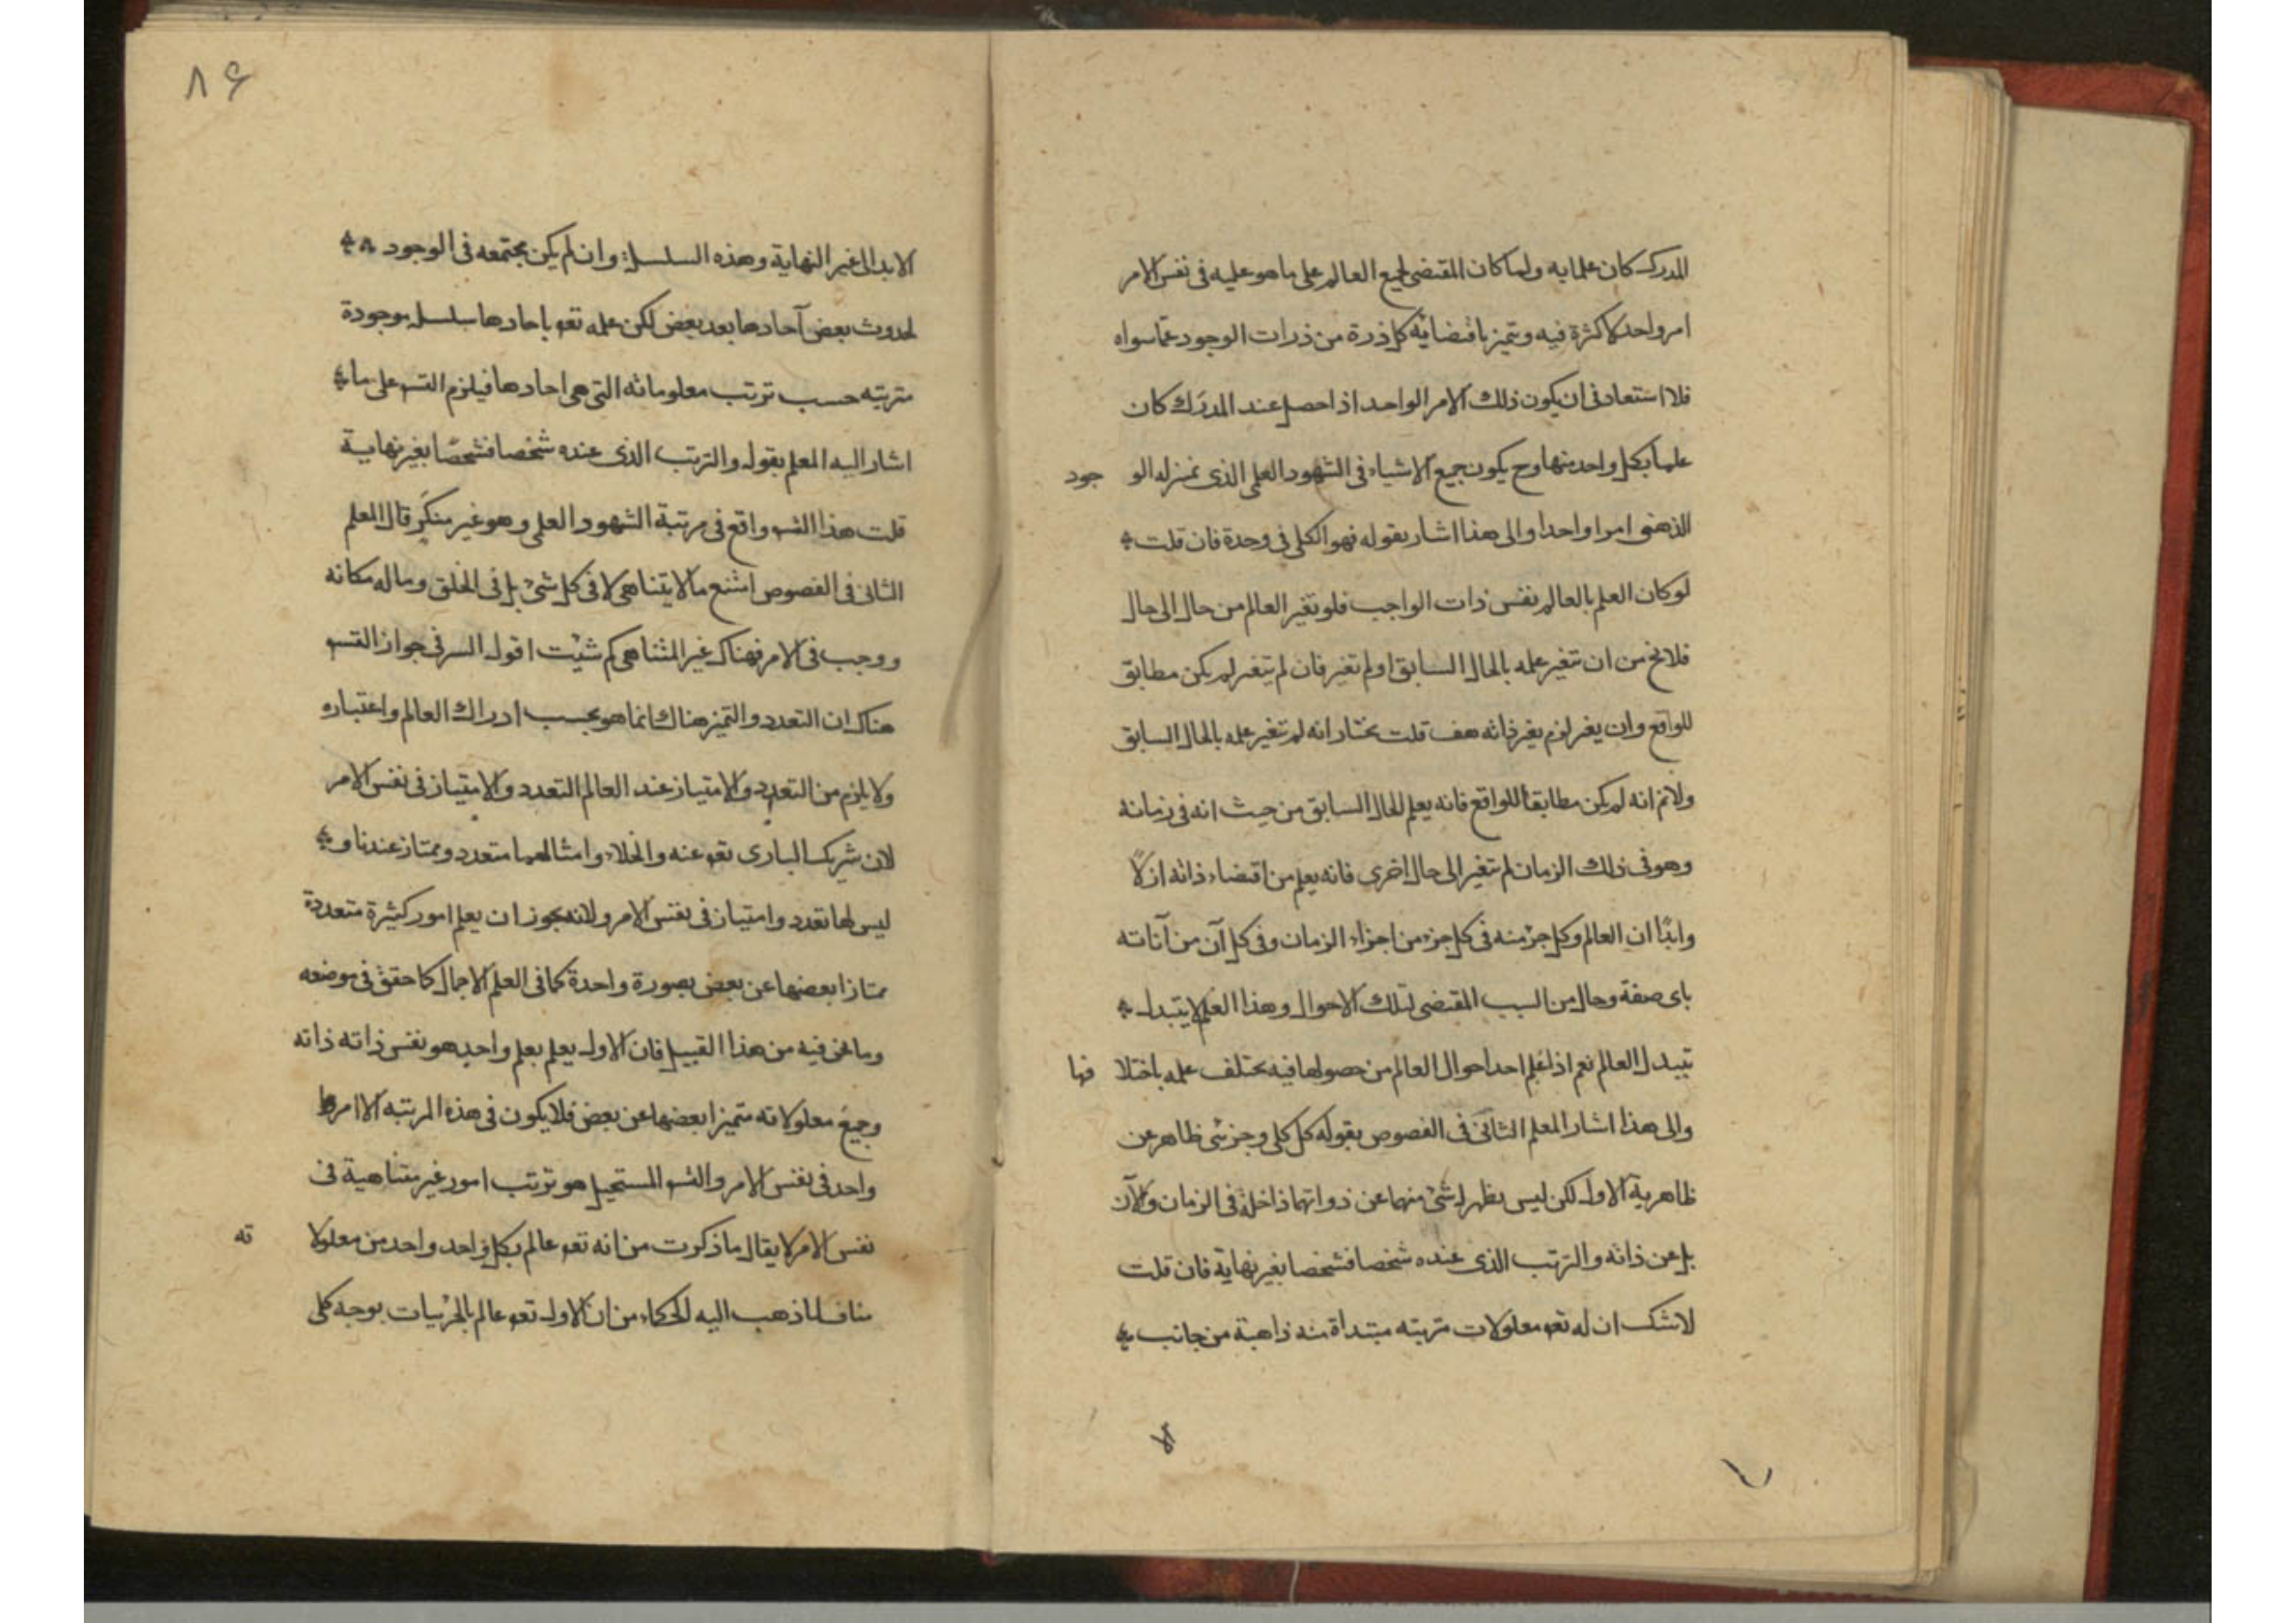 المدرك كان علما به ولما كان المقتضى لجميع العالم على ما هو عليه فى نفس الامر
امر واحد لا كثرة فيه ويتميز باقتضائه كل ذرة من ذرات الوجود عما سواه
فلا استبعاد فى ان يكون ذلك الامر الواحد اذا حصل عند المدرك كان
علما بكل واحد منها وح يكون جميع الاشياء فى الشهود العلمى الذى بمنزله الو جود
الذهنى امرا واحدا والى هذا اشار بقوله فهو الكل فى وحدة فان قلت
لو كان العلم بالعالم نفس ذات الواجب فلو تغير العالم من حال الى حال
فلا يخ من ان تتغير علمه بالحال السابق او لم تغير فان لم يتغير لم يكن مطابق
للواقع وان يغير لزم يغير ذاته هف قلت نختار انه لم تتغير علمه بالحال السابق
ولانم انه لم يكن مطابقا للواقع فانه يعلم الحال السابق من حيث انه فى زمانه
وهو فى ذلك الزمان لم تتغير الى حال اخرى فانه يعلم من اقتضاء ذاته ازلًا
وابدًا ان العالم وكل جزء منه فى كل جزء من اجزاء الزمان وفى كل آن من آناته
باى صفة وحال من السبب المقتضى لتلك الاحوال وهذا العلم لا يتبدل
تبيدل العالم نعم اذا علم احد احوال العالم من حصولها فيه يختلف علمه باختلا فها
والى هذا اشار المعلم الثانى فى الفصوص بقوله كل كلى وجزئى ظاهر عن
ظاهرية الاول لكن ليس يظهر له شئ منها عن ذواتها داخلة فى الزمان والآن
بل عن ذاته والترتب الذى عنده شخصا فشخصا بغير نهاية فان قلت
لاشك ان له تعو معلولات مترتبه مبتداة منه ذاهبة من جانب
٨٦
الابد الى غير النهاية وهذه السلسلة وان لم يكن مجتمعه فى الوجود
لحدوث بعض آحادها بعد بعض لكن علمه تعو باحادها سلسله موجودة
مترتبه حسب ترتب معلوماته التى هى احادها فيلزم التسو على ما
اشار اليه المعلم بقوله والترتب الذى عنده شخصا فشخصًا بغير نهاية
قلت هذا التسو واقع فى مرتبة الشهود العلمى وهو غير منكر قال المعلم
الثانى فى الفصوص امتنع مالا يتناهى لا فى كل شئ بل فى الخلق وماله مكانه
ووجب فى الامر فهناك غير المتناهى كم شيئت اقول السر فى جواز التسو
هناك ان التعدد والتميز هناك انما هو بحسب ادراك العالم واعتباره
ولا يلزم من التعدد والامتياز عند العالم التعدد والامتياز فى نفس الامر
لان شريك البارى تعو عنه والخلاء وامثالهما متعدد وممتاز عندنا و
ليس لها تعدد وامتياز فى نفس الامر ولانه يجوز ان يعلم امور كثيرة متعددة
ممتازا بعضها عن بعض بصورة واحدة كما فى العلم الاجمالى كما حقق فى موضعه
وما نحن فيه من هذا القبيل فان الاول يعلم بعلم واحد هو نفس ذاته ذاته
وجميع معلولاته متميزا بعضها عن بعض فلا يكون فى هذه المرتبه الا امر
واحد فى نفس الامر والتسو المستحيل هو ترتب امور غير متناهية فى
نفس الامر لا يقال ما ذكرت من انه تعو عالم بكل واحد واحد من معلولا ته
مناف لما ذهب اليه الحكماء من ان الاول تعو عالم بالجزئيات بوجه كلى